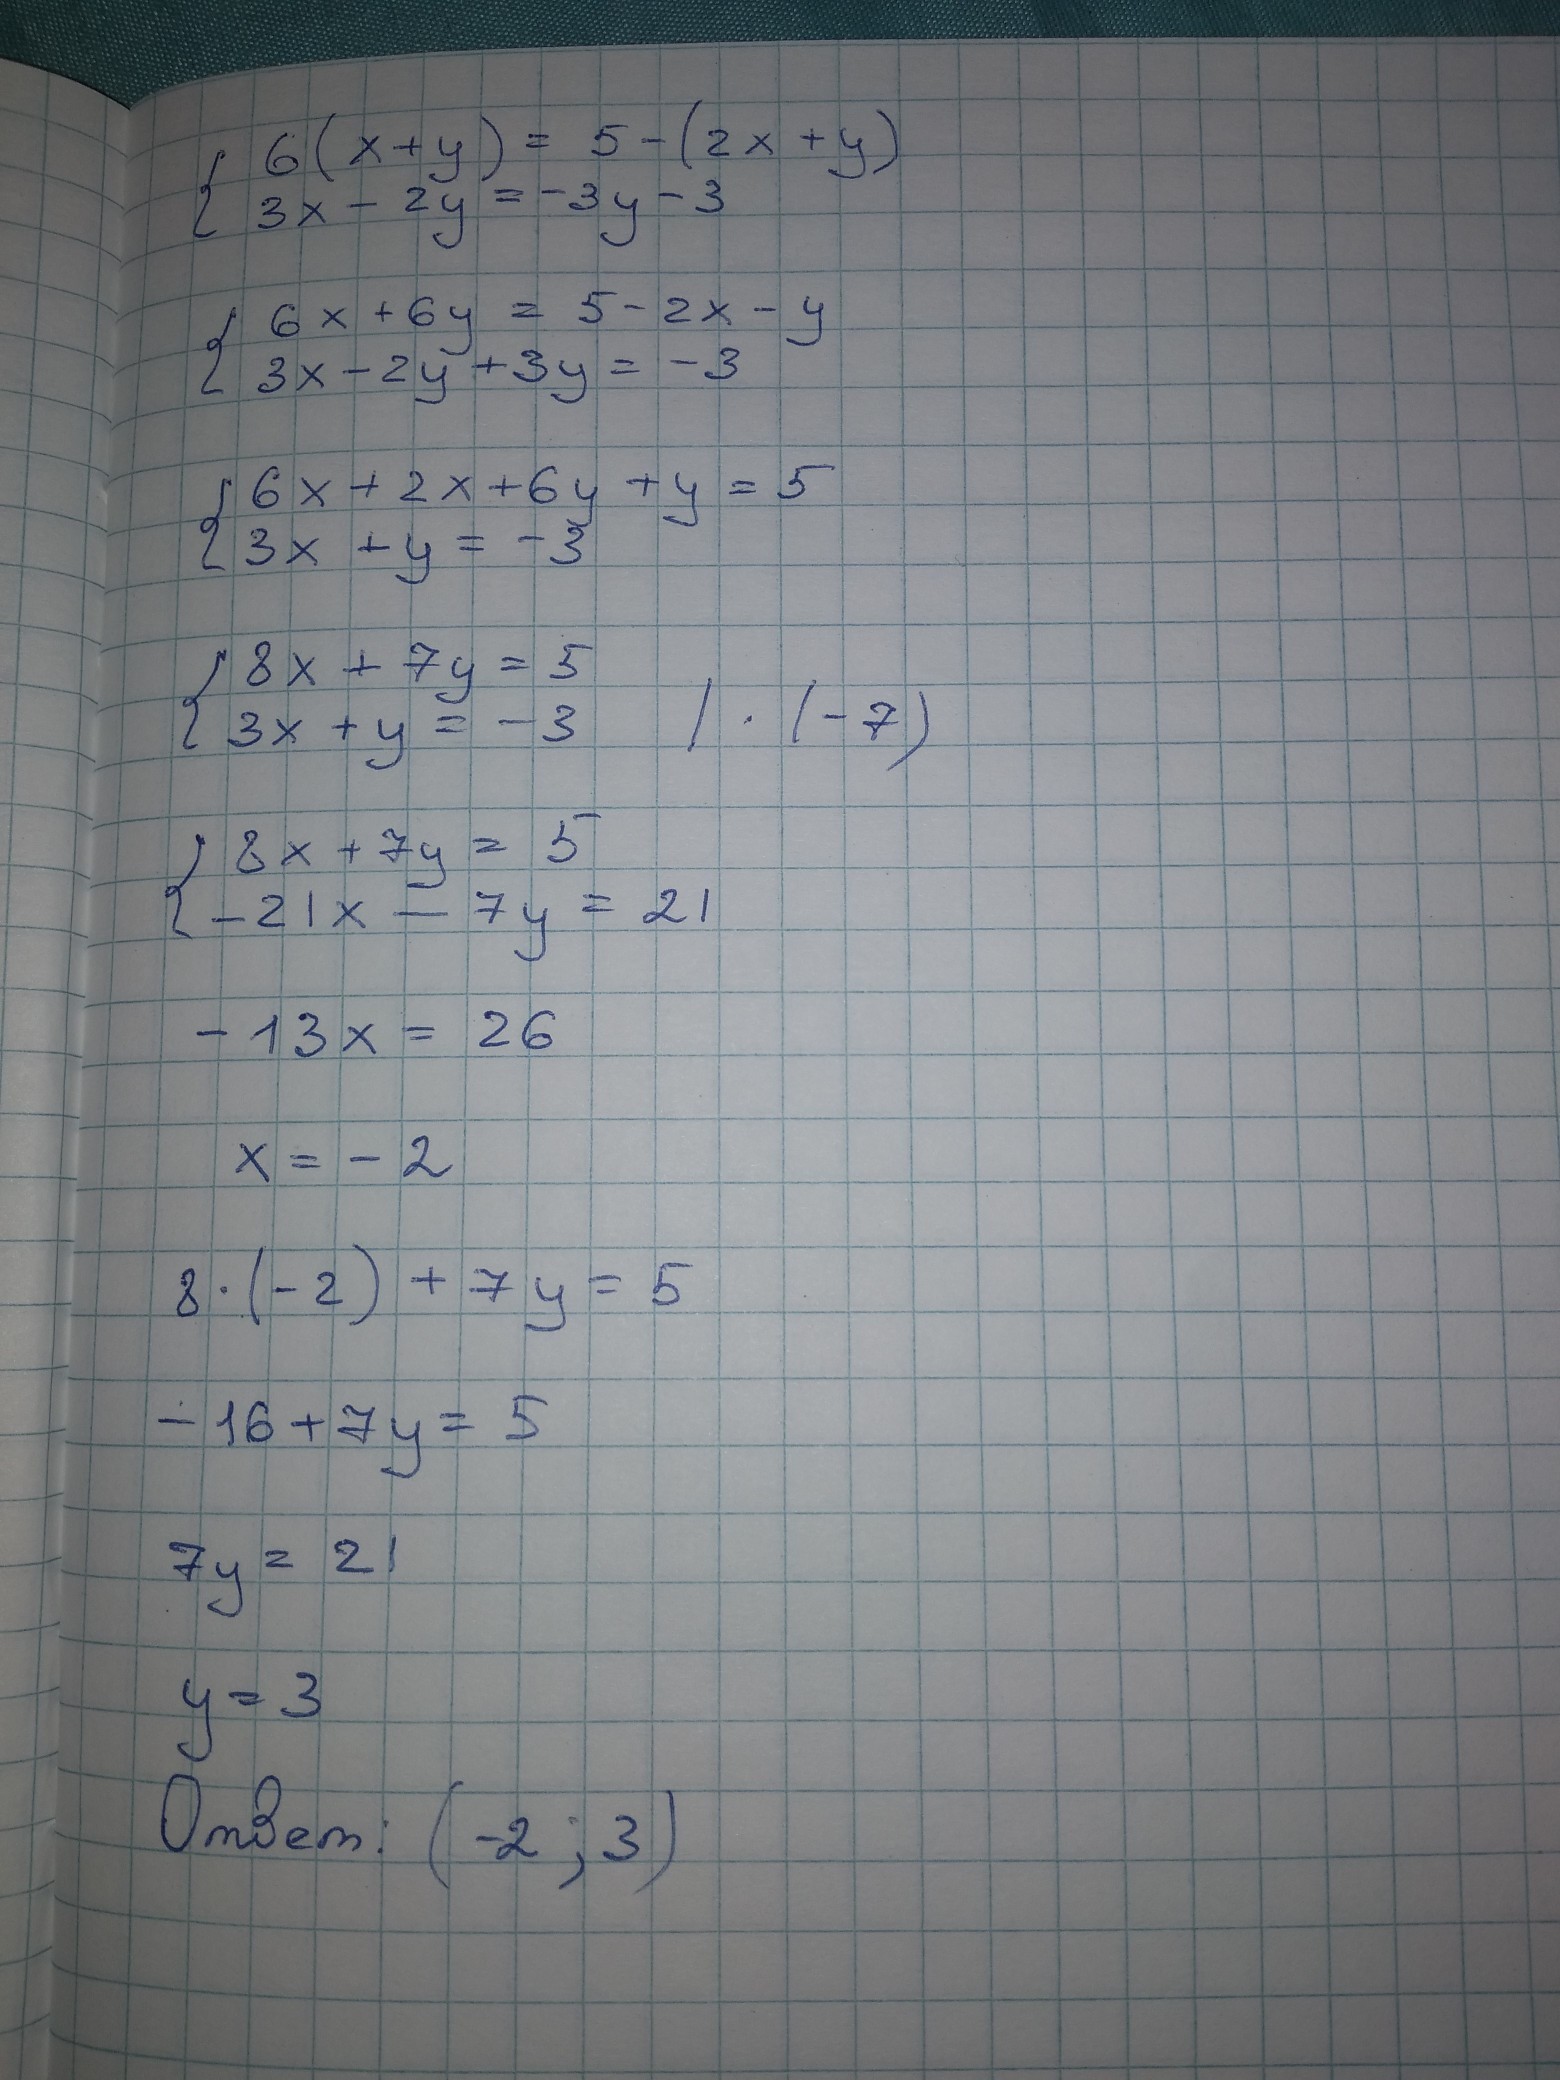 { 6(x+y) = 5-(2x+y)
3x - 2y = -3y - 3
{ 6x + 6y = 5 - 2x - y
3x - 2y + 3y = -3
{ 6x + 2x + 6y + y = 5
3x + y = -3
{ 8x + 7y = 5
3x + y = -3 | · (-7)
{ 8x + 7y = 5
-21x - 7y = 21
-13x = 26
x = -2
8·(-2) + 7y = 5
-16 + 7y = 5
7y = 21
y = 3
Ответ: (-2; 3)